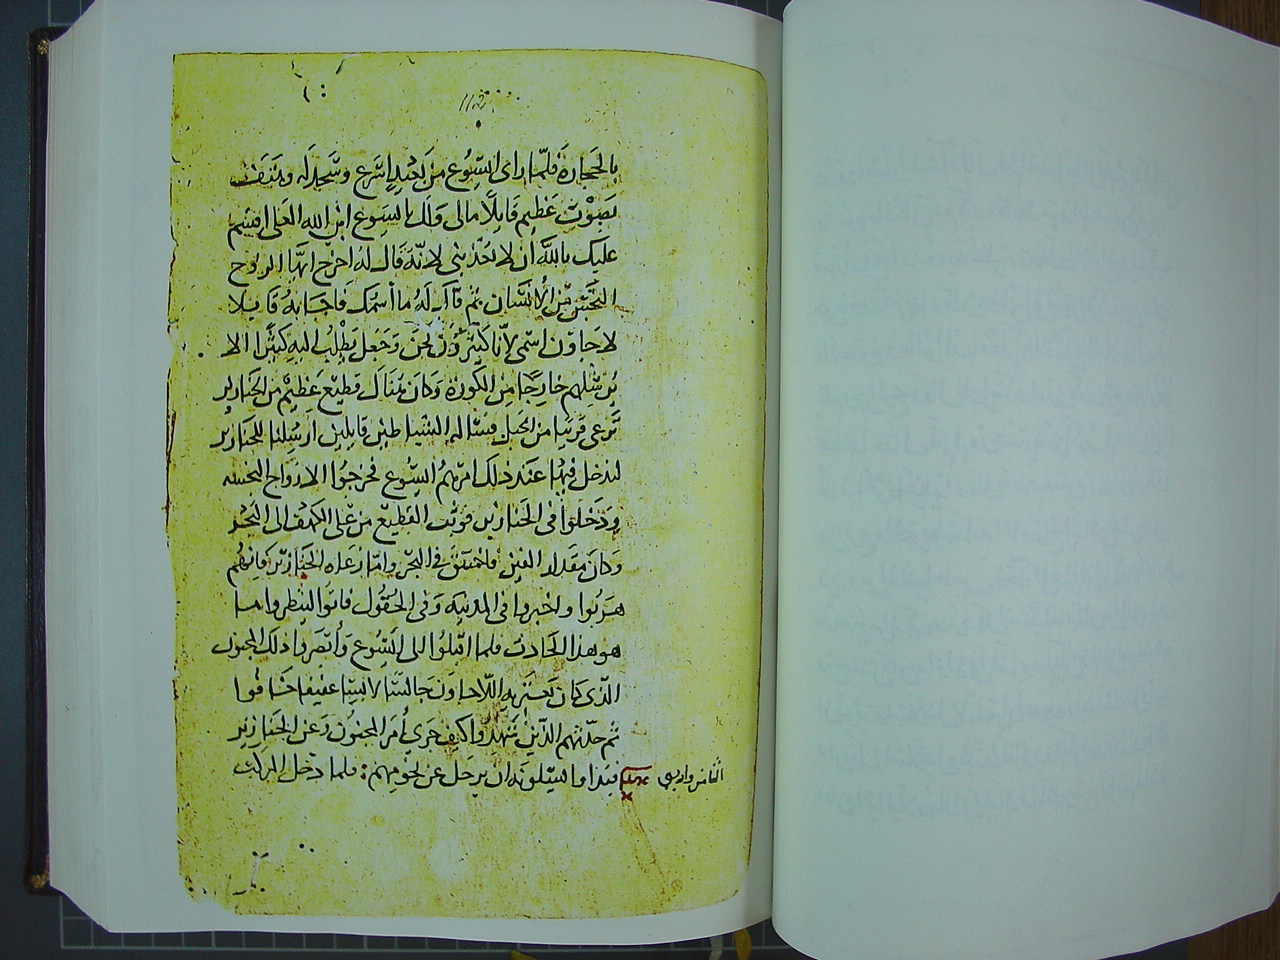 112
بالحجارة فلما راى اليسوع من بعيد اسرع وسجد له وهتف
بصوت عظيم قايلا مالى ولك يا يسوع ابن الله العلى اقسم
عليك بالله ان لا تعذبنى لانه قال له اخرج ايها الروح
النجس من الانسان ثم قال له ما أسمك فاجابه قايلا
لاجاون اسمى لأنا كثيرون نحن وجعل يطلب اليه كثيرا الا
يرسلهم خارجا من الكورة وكان هناك قطيع عظيم من الخنازير
ترعى قريبا من الجبل فساله الشياطين قايلين ارسلنا للخنازير
لندخل فيها عند ذلك امرهم اليسوع فخرجوا الارواح النجسه
ودخلوا فى الخنازير فوثب القطيع من على الكهف الى البحر
وكان مقدار الفين فاختنق فى البحر واما رعاه الخنازير فانهم
هربوا واخبروا فى المدينه وفى الحقول فاتوا لينظروا ما
هو هذا الحادث فلما اقبلوا الى اليسوع وأبصروا ذلك المجنون
الذى كان يعتريه اللاجاون جالسا لابسا عفيفا خافوا
ثم حدثهم الذين شهدوا كيف جرى أمر المجنون وعن الخنازير
فبداوا يسلونه ان يرحل عن تخومهم : فلما دخل المركب
الثامن واربعين